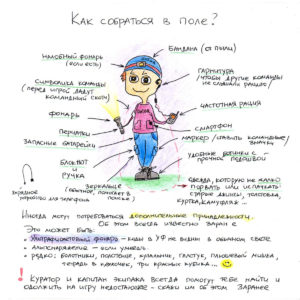 Как собраться в поле?
Бандана (от пыли)
налобный фонарь
(если есть)
гарнитура
(чтобы другие команды
не слышали рацию)
символика команды
(перед игрой дадут
командный скотч)
частотная рация
фонарь
смартфон
перчатки
маркер / ставить командные/
знаки
запасные батарейки
удобные ботинки с
прочной подошвой
блокнот
и
ручка
одежда, которую не жалко
порвать или испачкать:
старые джинсы, толстовка,
куртка, камуфляж...
зеркальце
(обычное, помогает в
поиске)
зарядное
устройство для телефона
Иногда могут потребоваться дополнительные принадлежности.
Об этом всегда известно заранее
Это может быть:
ультрафиолетовый фонарь - коды в УФ не видны в обычном свете
альпснаряжение - если умеешь
редко: болотники, полотенце, купальник, галстук, плюшевый мишка,
тетрадь в клеточку, три красных кубика...
! Куратор и капитан экипажа всегда помогут тебе найти и
одолжить на игру недостающее - скажи им об этом заранее